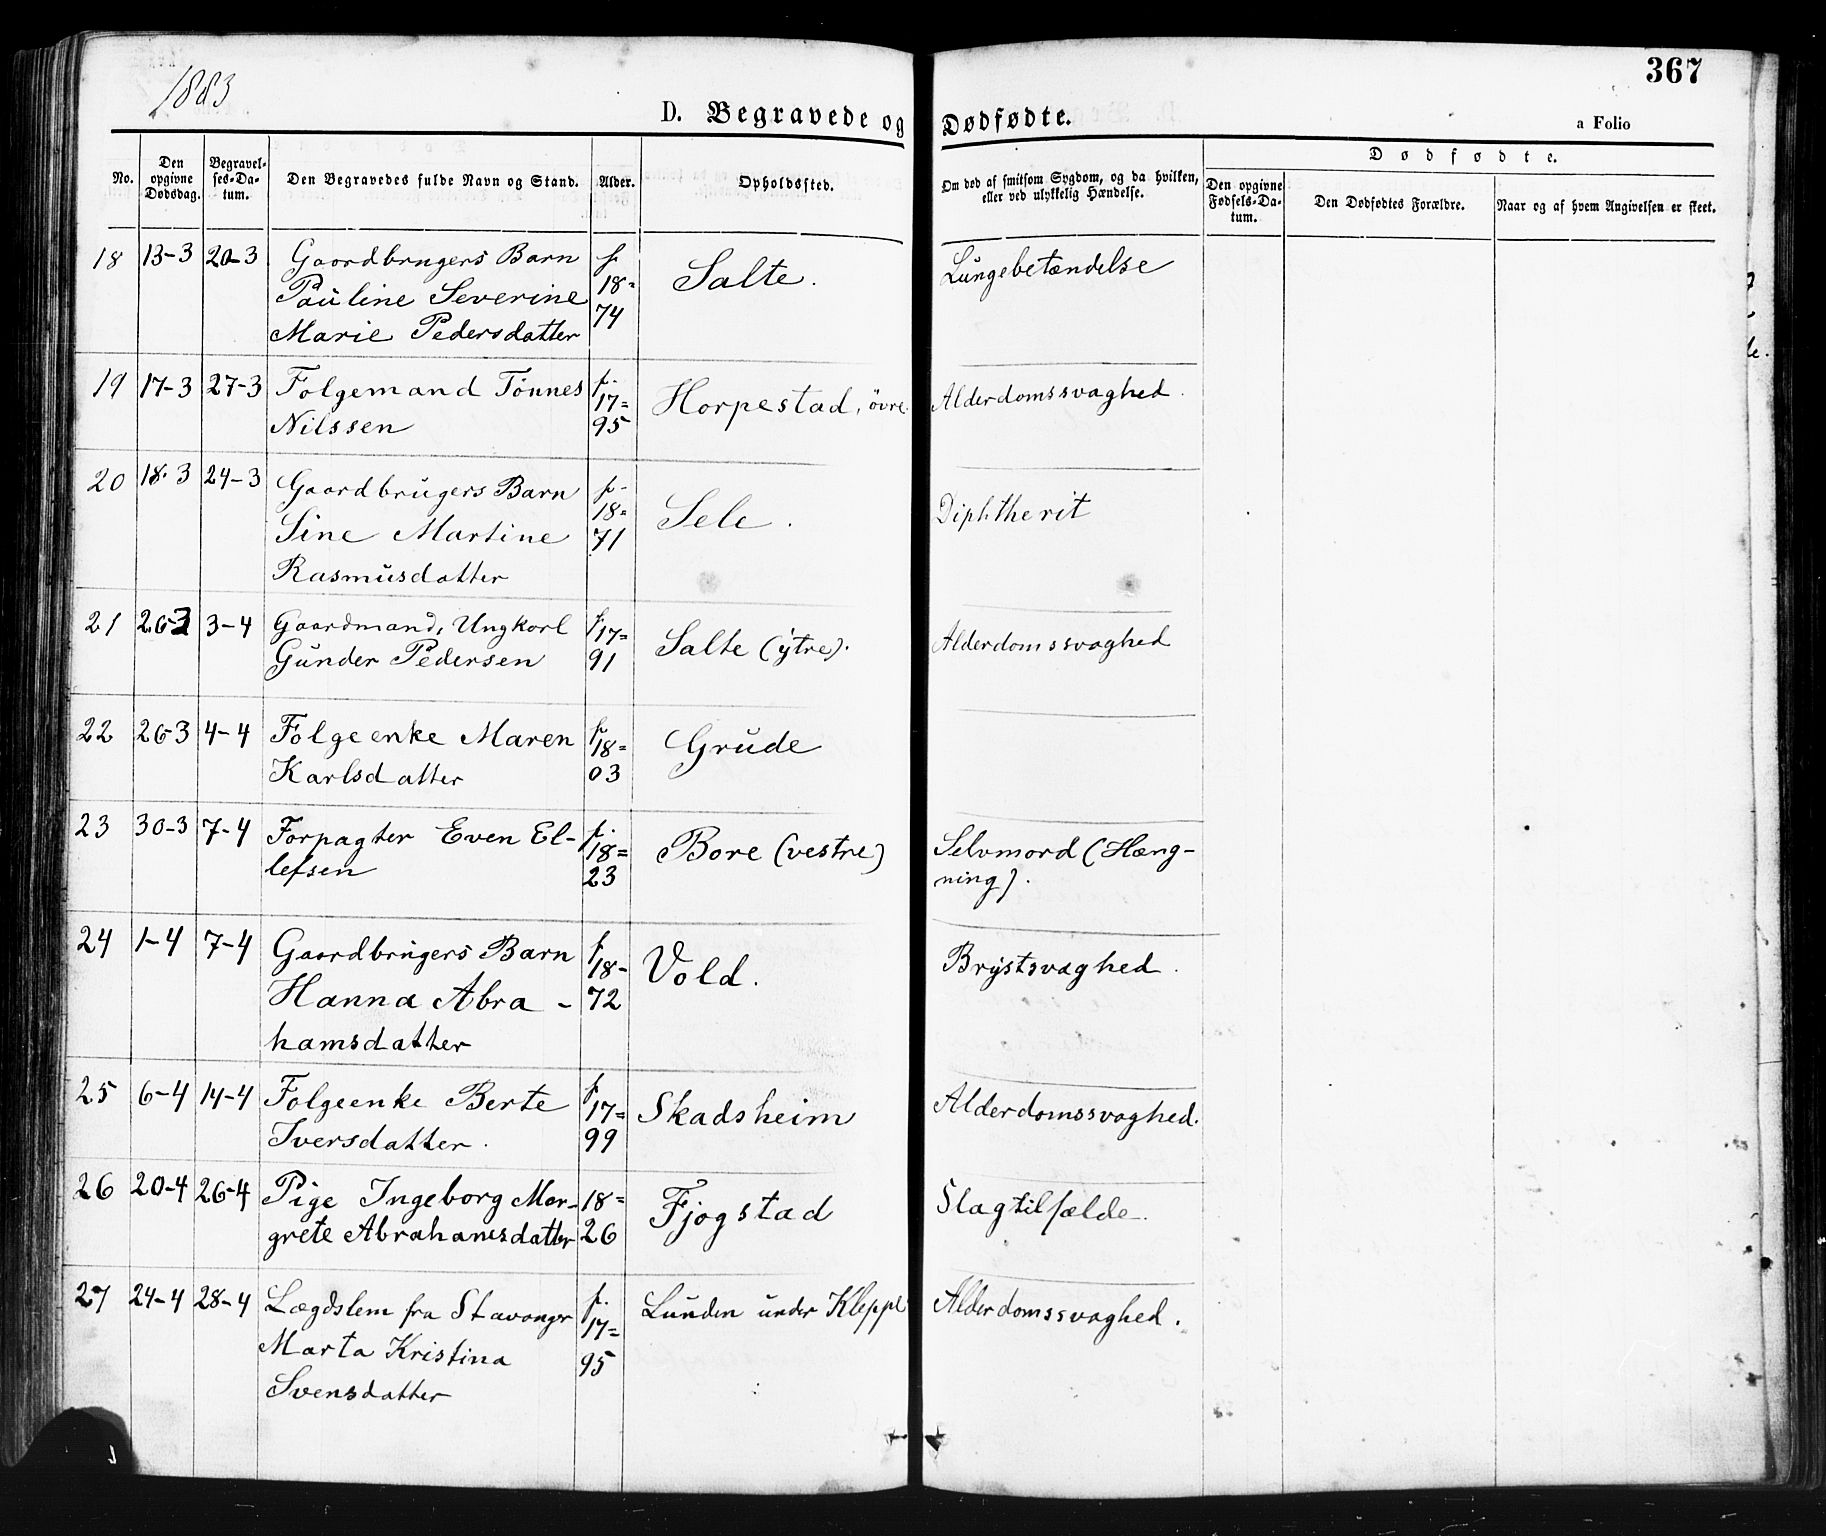 1883
367
D. Begravede og Dødfødte.
a Folio
No.
Den opgivne Dødsdag.
Begravelses-Datum.
Den Begravedes fulde Navn og Stand.
Alder.
Opholdssted.
Om død af smitsom Sygdom, og da hvilken, eller ved ulykkelig Hændelse.
Dødfødte.
Den opgivne Fødsels-Datum.
Den Dødfødtes Forældre.
Naar og af hvem Angivelsen er skeet.
18 13-3 20-3 Gaardbrugers Barn f Salte. Lungebetændelse
Pauline Severine 18=
Marie Pedersdatter 74
19 17-3 27-3 Folgemand Tönnes f. Horpestad, övre. Alderdomssvaghed.
Nilssen 17=
95
20 18-3 24-3 Gaardbrugers Barn f- Sele. Diphtherit
Sine Martine 18=
Rasmusdatter 71
21 26-3 3-4 Gaardmand, Ungkarl f 17= Salte (ytre). Alderdomssvaghed
Gunder Pedersen 91
22 26-3 4-4 Folgeenke Maren f 18= Grude
Karlsdatter 03
23 30-3 7-4 Forpagter Even El- f. 18= Bore (vestre) Selvmord (Hæng-
lefsen 23 ning).
24 1-4 7-4 Gaardbrugers Barn f 18- Vold. Brystsvaghed.
Hanna Abra- 72
hamsdatter
25 6-4 14-4 Folgeenke Berte f 17= Skadsheim Alderdomssvaghed.
Iversdatter. 99
26 20-4 26-4 Pige Ingeborg Mar- 18= Fjogstad Slagtilfælde.
grete Abrahamsdatter 26
27 24-4 28-4 Lægdslem fra Stavanger f. Lunden under Kleppe Alderdomssvaghed.
Marta Kristina 17=
Svensdatter 95